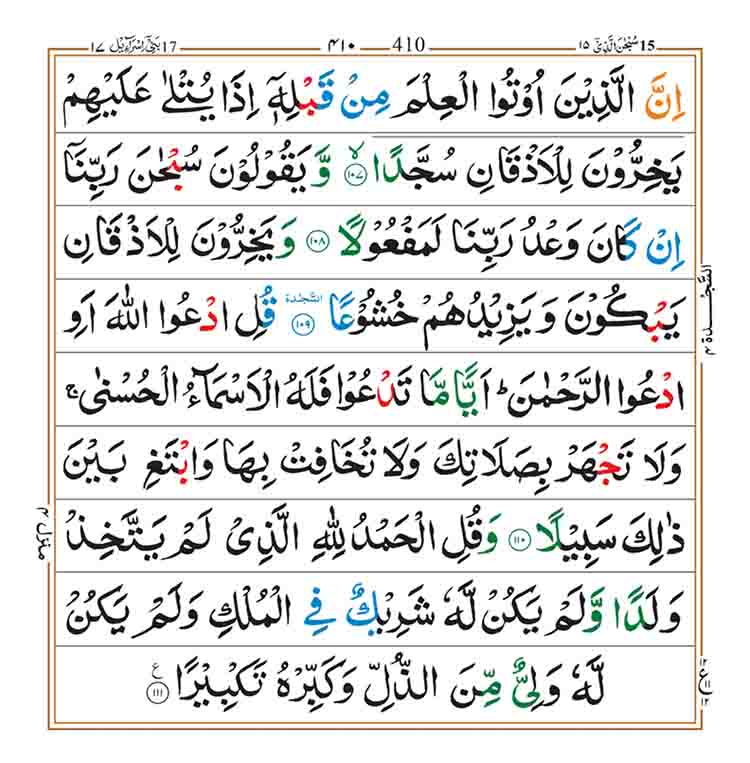 سُبْحٰنَ الَّذِيْۤ 15 ١٥
410 ٤١٠
بَنِيْۤ اِسْرَآءِيْل 17 ١٧
اِنَّ الَّذِيْنَ اُوْتُوا الْعِلْمَ مِنْ قَبْلِهٖۤ اِذَا يُتْلٰى عَلَيْهِمْ
يَخِرُّوْنَ لِلْاَذْقَانِ سُجَّدًا ۙ‏ ۝١٠٧ وَّيَقُوْلُوْنَ سُبْحٰنَ رَبِّنَاۤ
اِنْ كَانَ وَعْدُ رَبِّنَا لَمَفْعُوْلًا ۝١٠٨ وَيَخِرُّوْنَ لِلْاَذْقَانِ
يَبْكُوْنَ وَيَزِيْدُهُمْ خُشُوْعًا ۝١٠٩ السَّجْدَة قُلِ ادْعُوا اللّٰهَ اَوِ
ادْعُوا الرَّحْمٰنَ ؕ اَيًّا مَّا تَدْعُوْا فَلَهُ الْاَسْمَآءُ الْحُسْنٰى ۚ
وَلَا تَجْهَرْ بِصَلَاتِكَ وَلَا تُخَافِتْ بِهَا وَابْتَغِ بَيْنَ
ذٰلِكَ سَبِيْلًا ۝١١٠ وَقُلِ الْحَمْدُ لِلّٰهِ الَّذِيْ لَمْ يَتَّخِذْ
وَلَدًا وَّلَمْ يَكُنْ لَّهٗ شَرِيْكٌ فِي الْمُلْكِ وَلَمْ يَكُنْ
لَّهٗ وَلِيٌّ مِّنَ الذُّلِّ وَكَبِّرْهُ تَكْبِيْرًا ۝١١١ ع
السَّجْدَة ٤
منزل ٤
ع ١٢ ١١ ١٢